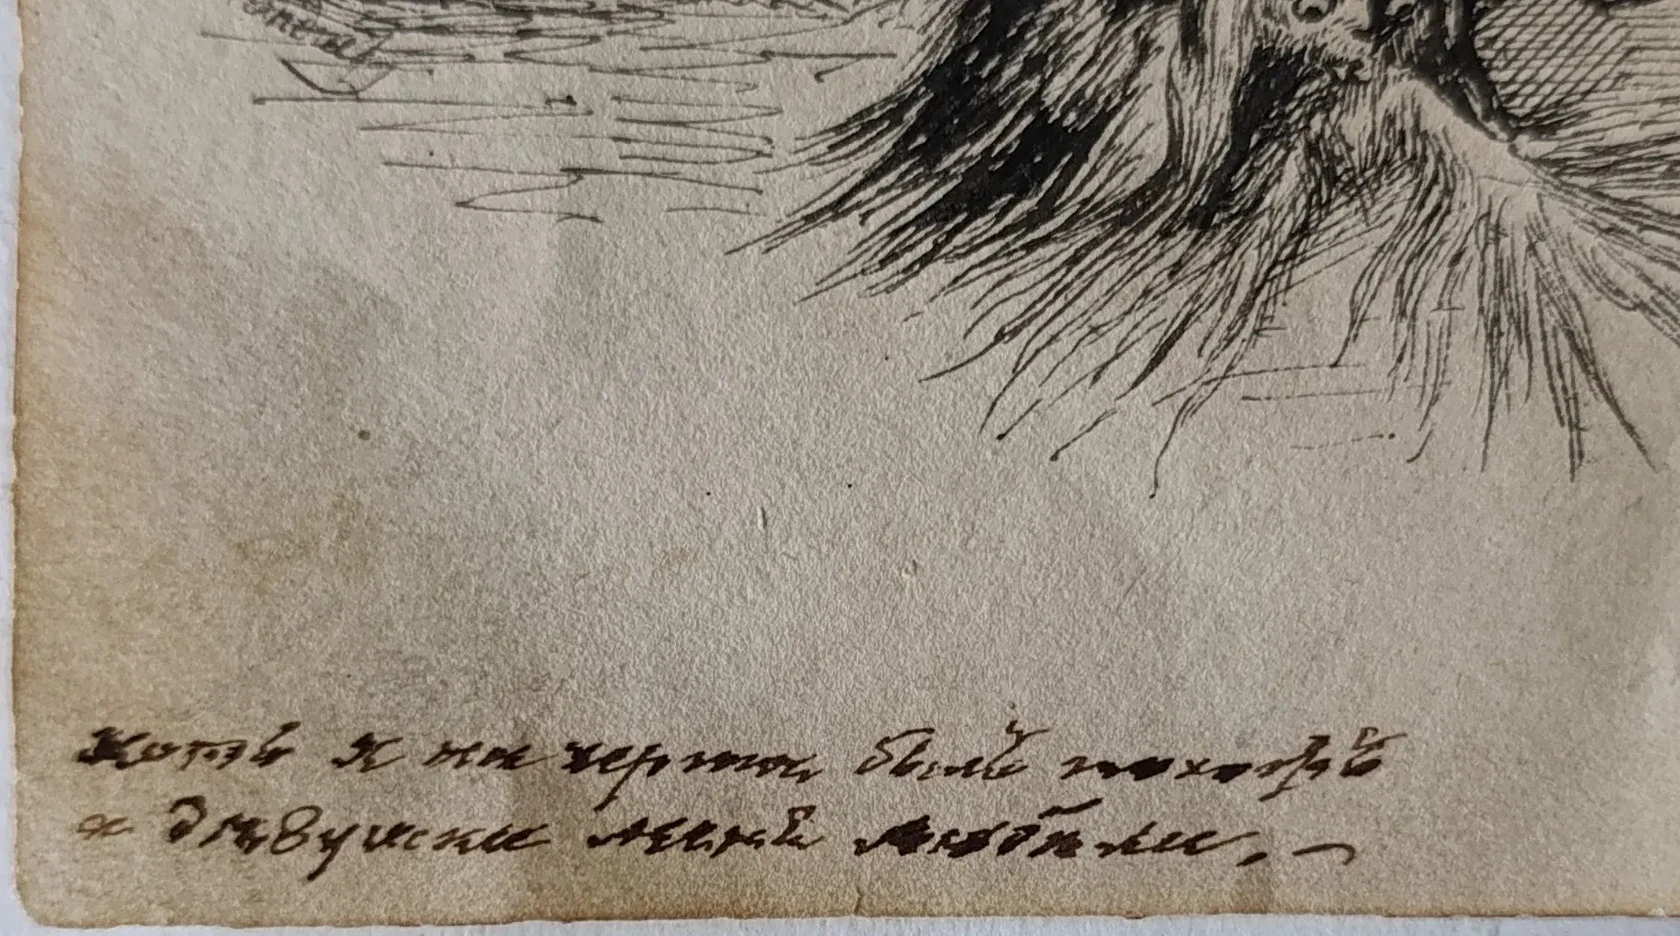 хотя я на черта былъ похожъ
а дѣвушки меня любили, —